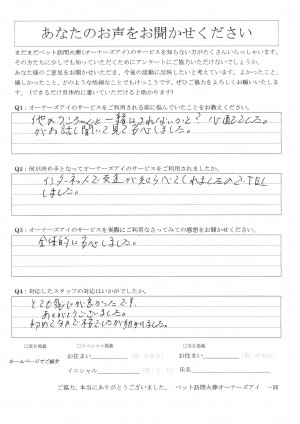 あなたのお声をお聞かせください
まだまだペット訪問火葬(オーナーズアイ)のサービスを知らない方がたくさんいらっしゃいます。
その方たちに少しでも知っていただくためにアンケートにご協力いただけないでしょうか。
あなた様のご意見をお聞かせいただき、今後の活動に反映したいと考えています。よかったこと、
嬉しかったこと、どのような些細なことでもけっこうです。ぜひご協力をよろしくお願いいたします。
(できるだけ具体的に書いていただけると助かります)
Q1:オーナーズアイのサービスをご利用される前に悩んでいたことをお教えください。
他のワンちゃんと一緒にされないか?心配でした。
がお話し聞いて見て安心しました。
Q2:何が決め手となってオーナーズアイのサービスをご利用されましたか。
インターネットで友達が調べてくれましたのでTEL
しました。
Q3:オーナーズアイのサービスを実際にご利用なさってみての感想をお聞かせください。
全体的に安心しました。
Q4:対応したスタッフの対応はいかがでしたか。
とても感じが良かったです。
ありがとうございました。
初めてなので不安でしたが助かりました。
□実名掲載 □イニシャル掲載 □匿名掲載
ホームページでご紹介
お住まい
お住まい
イニシャル
氏名
ご協力、本当にありがとうございました。 ペット訪問火葬オーナーズアイ 一同